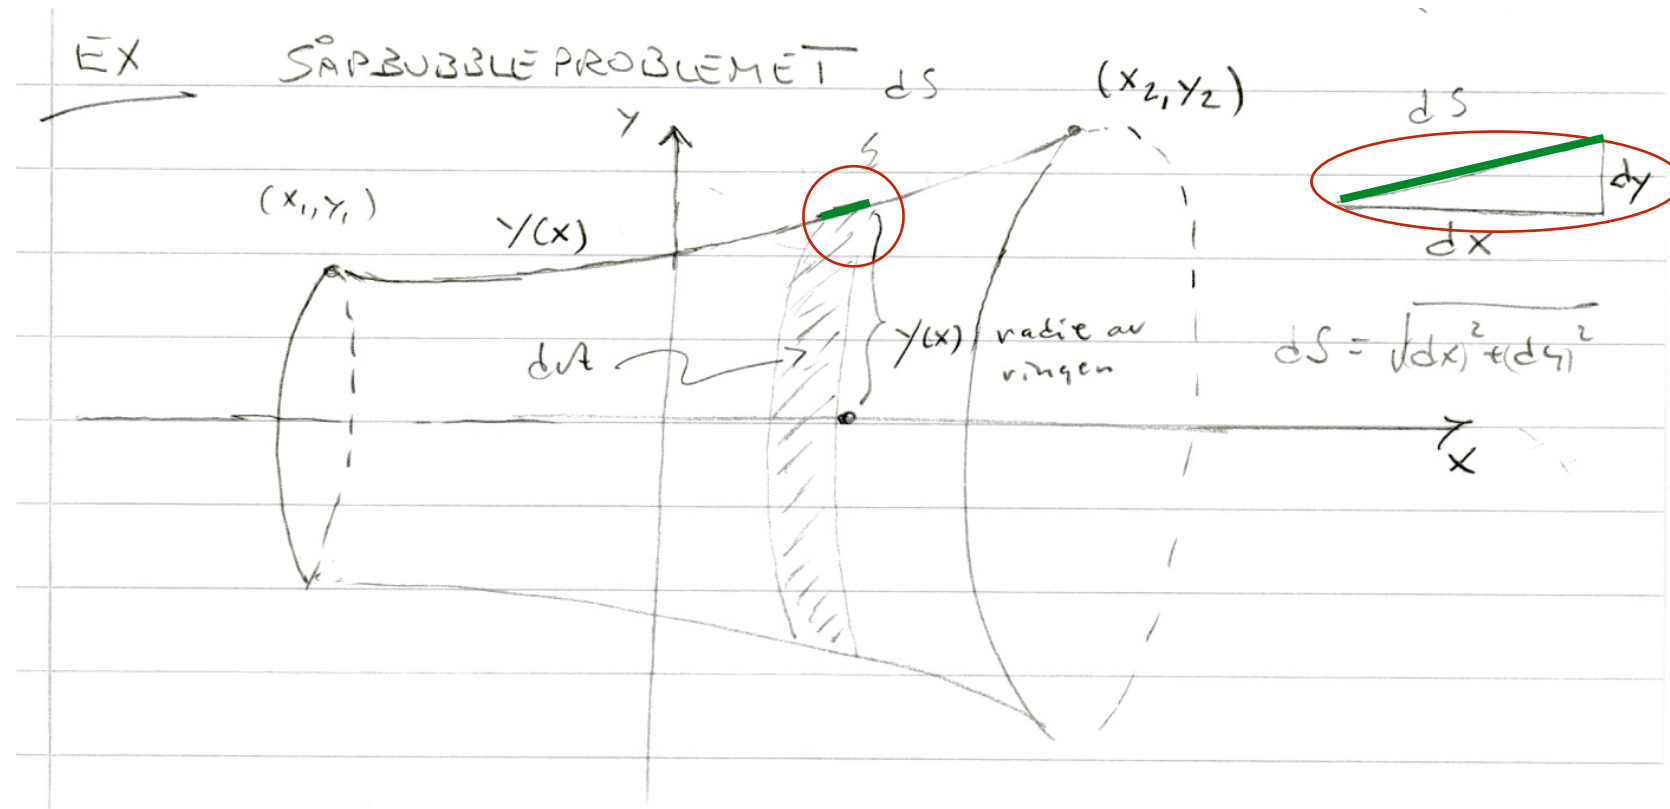 EX SÅPBUBBLEPROBLEMET
dS
(x₂, y₂)
dS
y
(x₁, y₁)
y(x)
dy
dx
dA
y(x) radie av
ringen
dS = √(dx)² + (dy)²
x